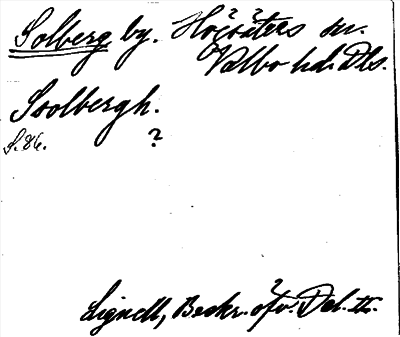 Solberg by. Högsäters sn.
Valbo hd. Dls.
Soolbergh.
S. 86. ?
Lignell, Beskr. öfv. Dal. III.